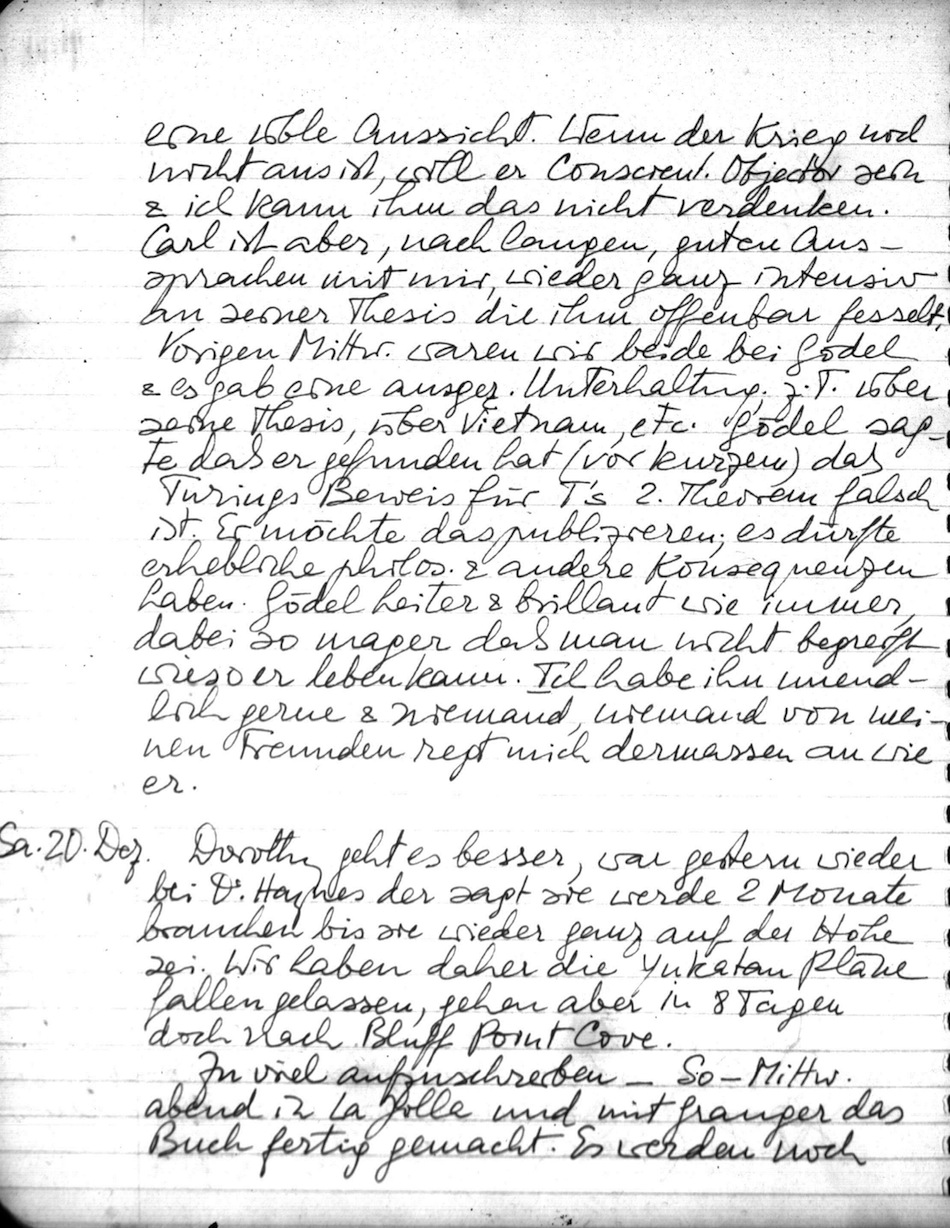 eine üble Aussicht. Wenn der Krieg noch
nicht aus ist, will er Conscient. Objector sein
& ich kann ihm das nicht verdenken.
Carl ist aber, nach langen, guten Aus-
sprachen mit mir, wieder ganz intensiv
an seiner Thesis die ihn offenbar fesselt.
Vorigen Mittw. waren wir beide bei Gödel
& es gab eine ausgez. Unterhaltung, z.T. über
seine Thesis, über Vietnam, etc. Gödel sag-
te daß er gefunden hat (vor kurzem) daß
Turings Beweis für T's 2. Theorem falsch
ist. Er möchte das publizieren; es dürfte
erhebliche philos. & andere Konsequenzen
haben. Gödel heiter & brillant wie immer,
dabei so mager daß man nicht begreift
wieso er leben kann. Ich habe ihn unend-
lich gerne & niemand, niemand von mei-
nen Freunden regt mich dermassen an wie
er.
Sa. 20. Dez. Dorothy geht es besser, war gestern wieder
bei Dr. Haynes der sagt sie werde 2 Monate
brauchen bis sie wieder ganz auf der Höhe
sei. Wir haben daher die Yukatan Pläne
fallen gelassen, gehen aber in 8 Tagen
doch nach Bluff Point Cove.
Zu viel aufzuschreiben – So – Mittw.
abend in La Jolla und mit Granger das
Buch fertig gemacht. Es werden noch